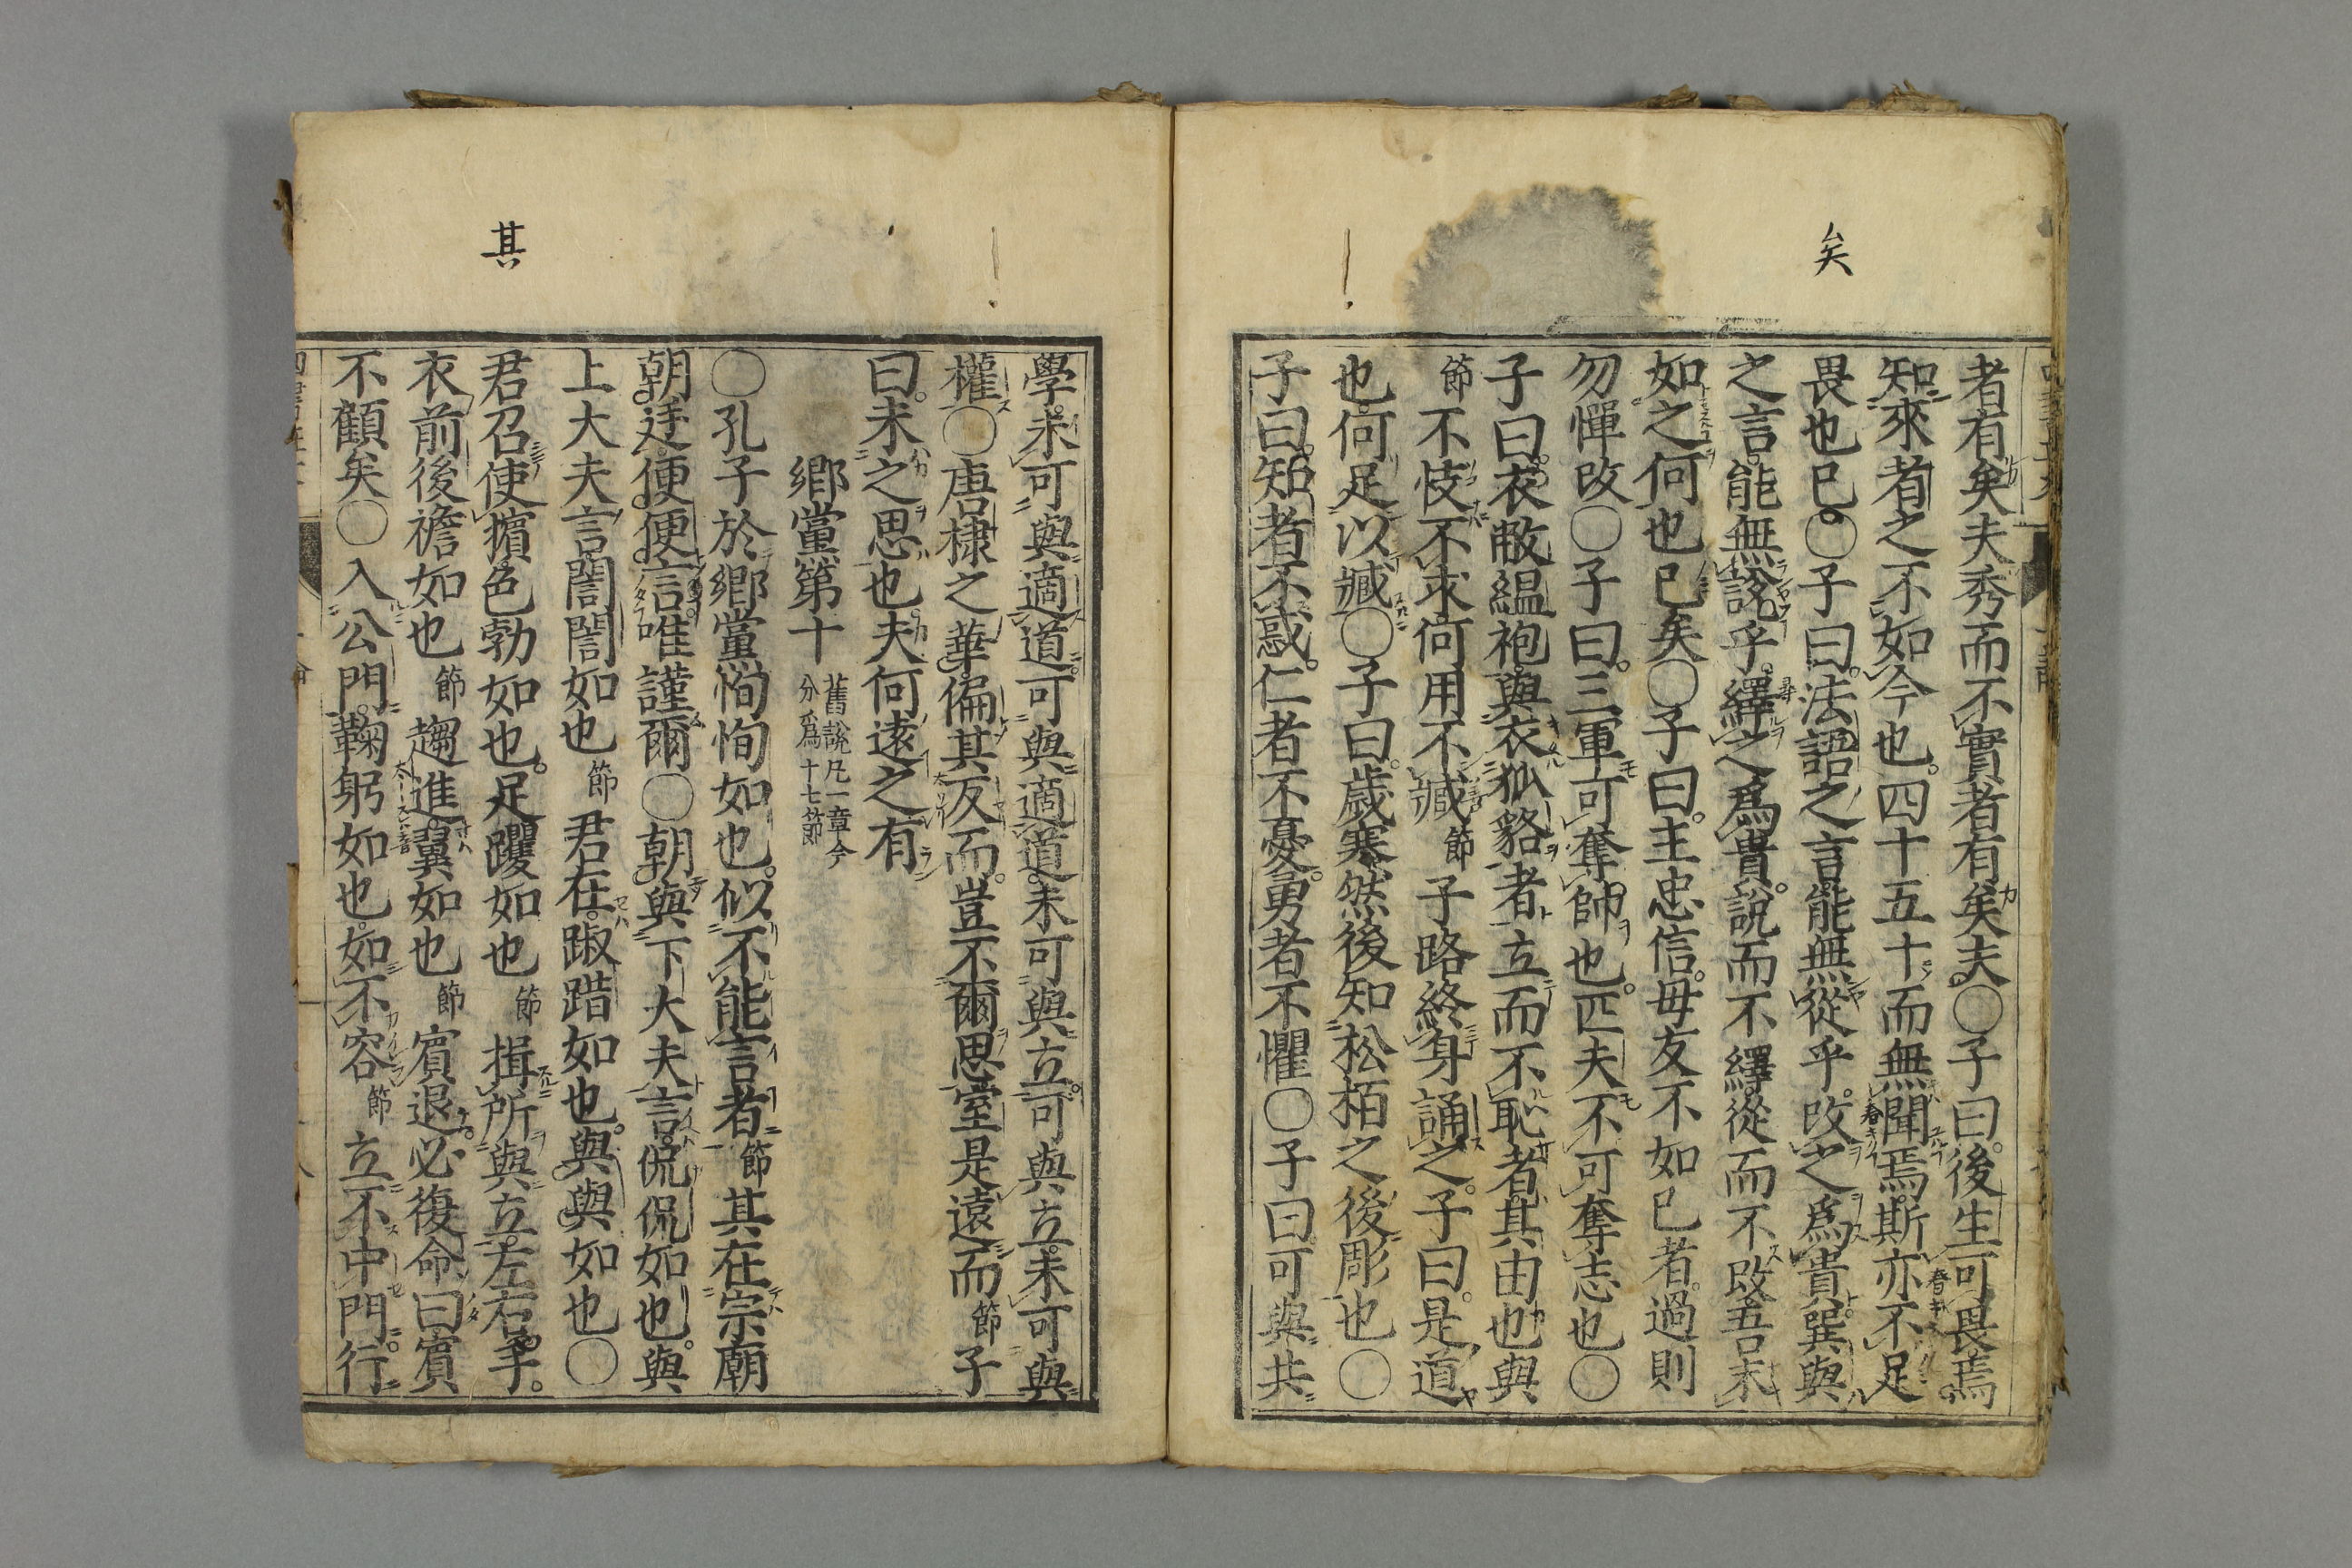 矣
者有矣夫秀而不實者有矣夫〇子曰後生可畏焉
知來者之不如今也四十五十而無聞焉斯亦不足
畏也已〇子曰法語之言能無從乎改之爲貴巽與
之言能無說乎繹之爲貴說而不繹從而不改吾末
如之何也已矣〇子曰主忠信毋友不如己者過則
勿憚改〇子曰三軍可奪帥也匹夫不可奪志也〇
子曰衣敝縕袍與衣狐貉者立而不恥者其由也與
節不忮不求何用不臧節子路終身誦之子曰是道
也何足以臧〇子曰歲寒然後知松栢之後彫也〇
子曰知者不惑仁者不憂勇者不懼〇子曰可與共
其
學未可與適道可與適道未可與立可與立未可與
權〇唐棣之華偏其反而豈不爾思室是遠而節子
曰未之思也夫何遠之有
鄉黨第十舊說凡一章今
分爲十七節
〇孔子於鄉黨恂恂如也似不能言者節其在宗廟
朝廷便便言唯謹爾〇朝與下大夫言侃侃如也與
上大夫言誾誾如也節君在踧踖如也與與如也〇
君召使擯色勃如也足躩如也節揖所與立左右手
衣前後襜如也節趨進翼如也節賓退必復命曰賓
不顧矣〇入公門鞠躬如也如不容節立不中門行